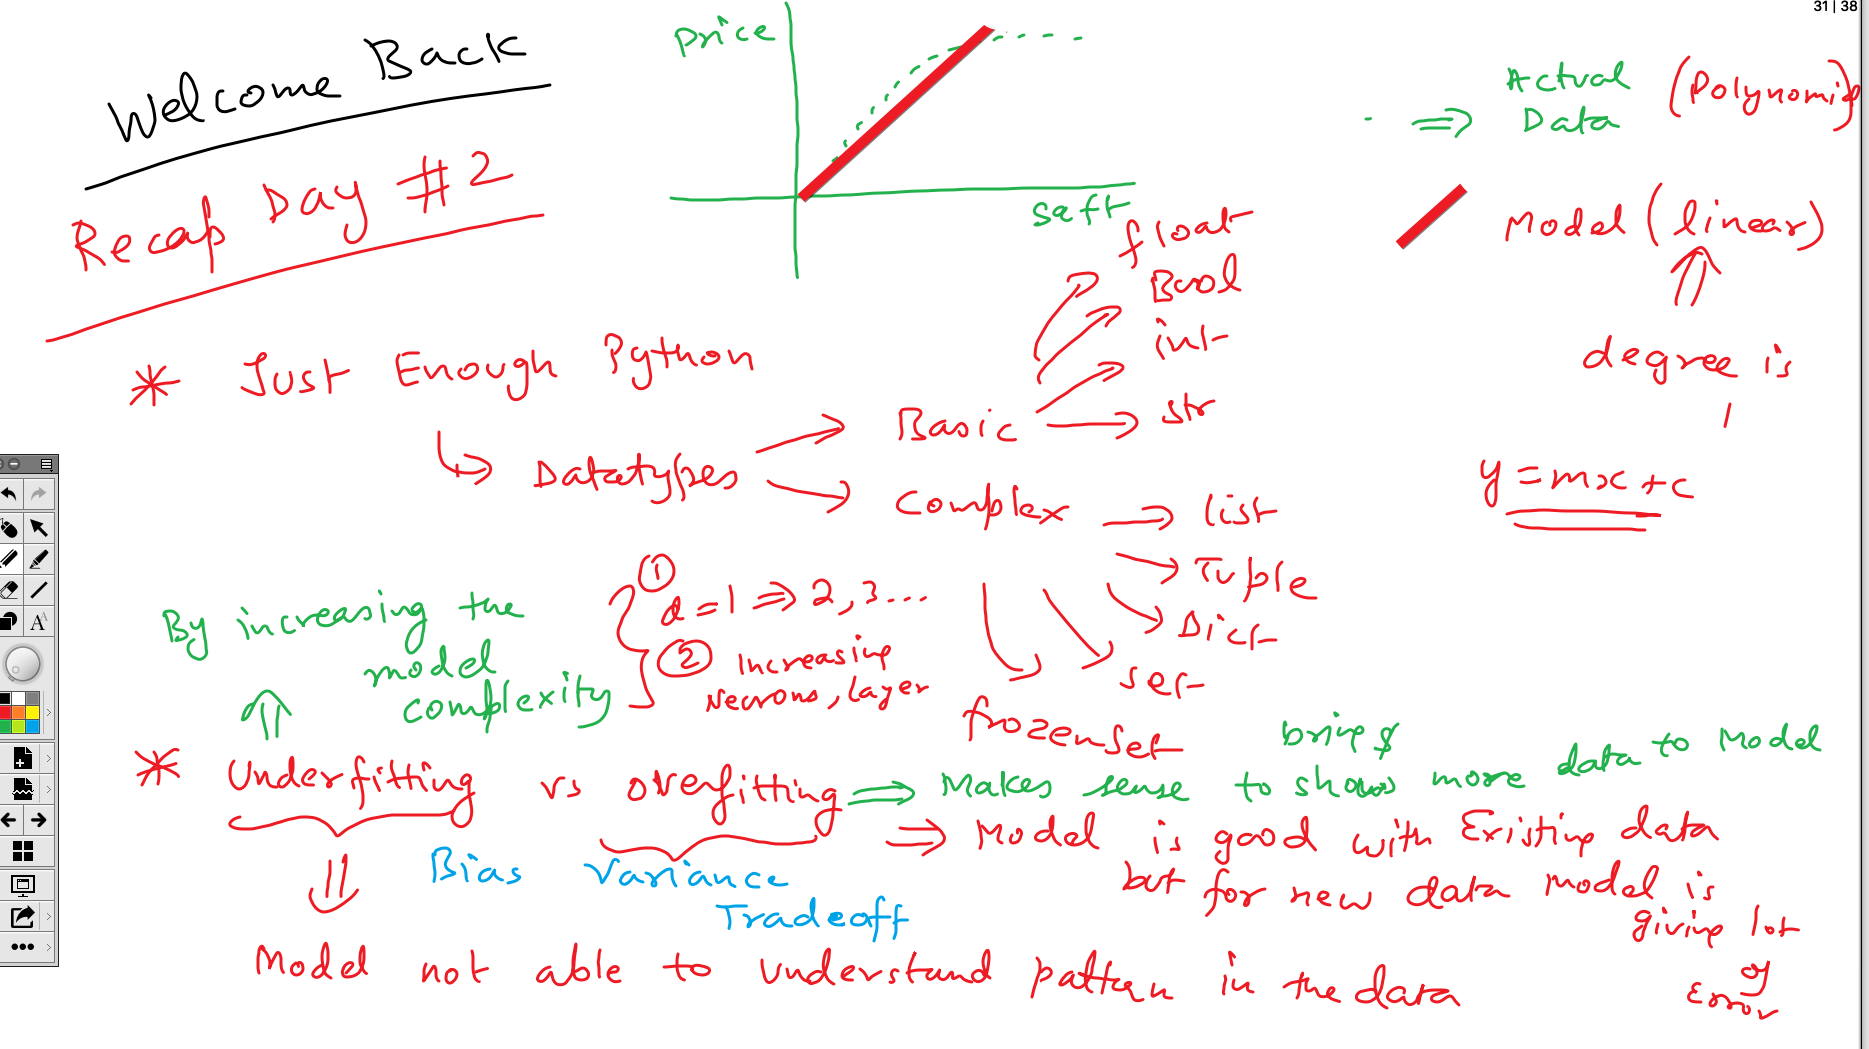 31 | 38
Welcome Back
Recap Day #2
Price
saft
Actual (Polynomi
Data
Model (linear)
degree is
1
y = mx + c
* Just Enough Python
Datatypes
Basic
float
Bool
int
str
Complex
list
Tuple
Dict
set
frozenset
By increasing the
model
complexity
① d = 1 ⇒ 2, 3...
② Increasing
Neurons, layer
* Underfitting vs overfitting ⇒ Makes sense to shows more data to Model
bring
⇒ Model is good with Existing data
but for new data model is
giving lot
of
Error
Bias Variance
Tradeoff
Model not able to understand pattern in the data
A